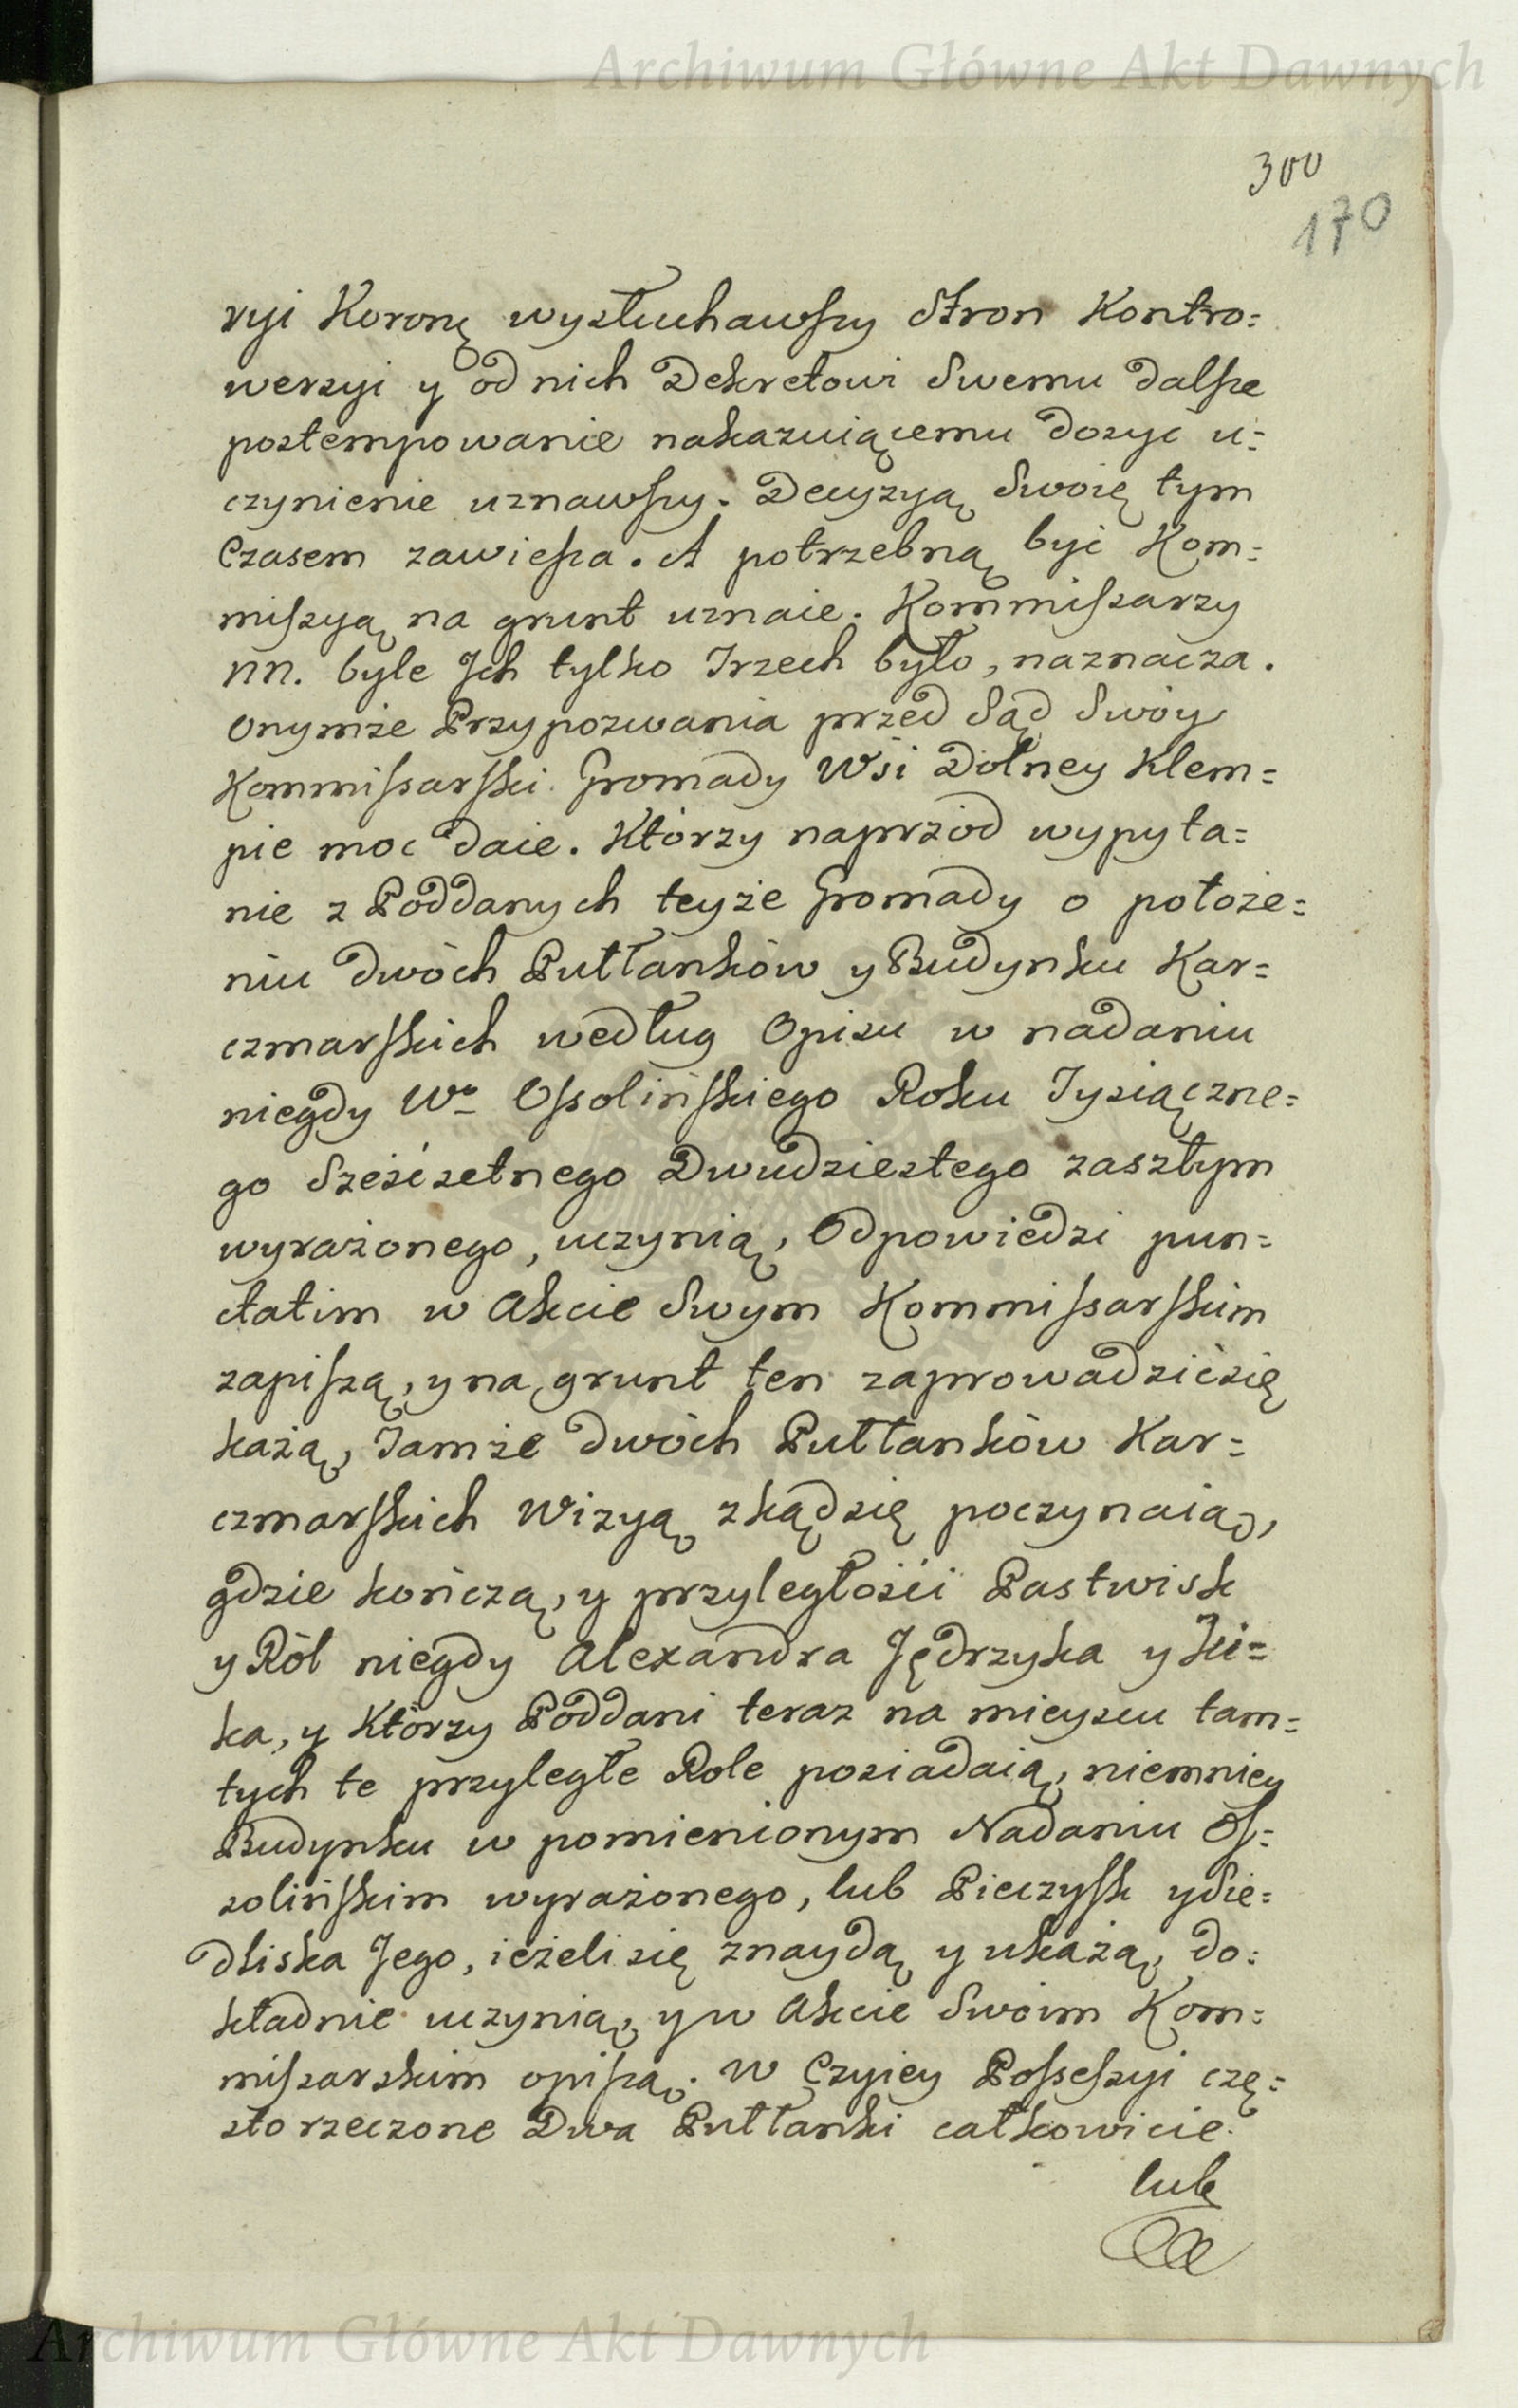 Archiwum Główne Akt Dawnych
300
170
ryi Koronę wysłuchawszy Stron Kontro=
wersyi y od nich Dekretowi Swemu dalsze
postempowanie nakazuiącemu dosyć u=
czynienie uznawszy. Decyzyą Swoię tym
Czasem zawiesza. A potrzebną być Kom=
missyą na grunt uznaie. Kommissarzy
nn. byle Ich tylko Trzech było, naznacza.
Onymże Przypozwania przed Sąd Swóy
Kommissarski Gromady Wsi Dolney Klem=
pie moc daie. Którzy naprzód wypyta=
nie z Poddanych teyże Gromady o położe=
niu dwóch Pułłanków y Budynku Kar=
czmarskich według Opisu w nadaniu
niegdy Wo Ossolińskiego Roku Tysiączne=
go Sześćsetnego Dwudziestego zaszłym
wyrażonego, uczynią, Odpowiedzi pun=
ctatim w Akcie Swym Kommissarskim
zapiszą, y na grunt ten zaprowadzić się
każą, Tamże dwóch Pułłanków Kar=
czmarskich Wizyą zkąd się poczynaią,
gdzie kończą, y przyległości Pastwisk
y Ról niegdy Alexandra Jędrzyka y Ki=
ka, y Którzy Poddani teraz na mieyscu tam=
tych te przyległe Role posiadaią, niemniey
Budynku w pomienionym Nadaniu Os=
solińskim wyrażonego, lub Pieczysk y Sie=
dliska Jego, ieżeli się znaydą y ukażą, do=
kładnie uczynią, y w Akcie Swoim Kom=
missarskim opiszą. W Czyiey Possessyi czę=
sto rzeczone Dwa Pułłanki całkowicie
lub
Archiwum Główne Akt Dawnych